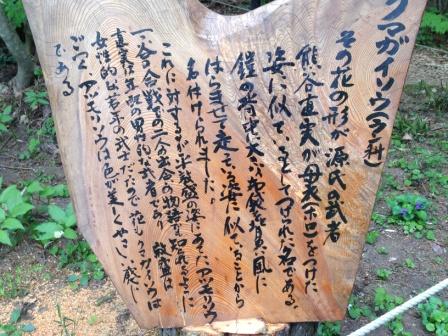 クマガイソウ(ラン科)
その花の形が源氏の武者
熊谷直実が母衣(ホロ)をつけた
姿に似ているのでつけられた名である。
鎧の背せ、大きな布袋を負い風に
はらませて走っている姿に似ていることから
名付けられました。
これに対するが平敦盛の姿にあったアツモリソウ
一ノ谷合戦での二人の出会の物語が知られるように
直実は豆腐の男性的な武者であり、敦盛は
女性的な若年の武士だったので花もクマガイソウは
ごつく、アツモリソウは色が美しくやさしい感じ
である